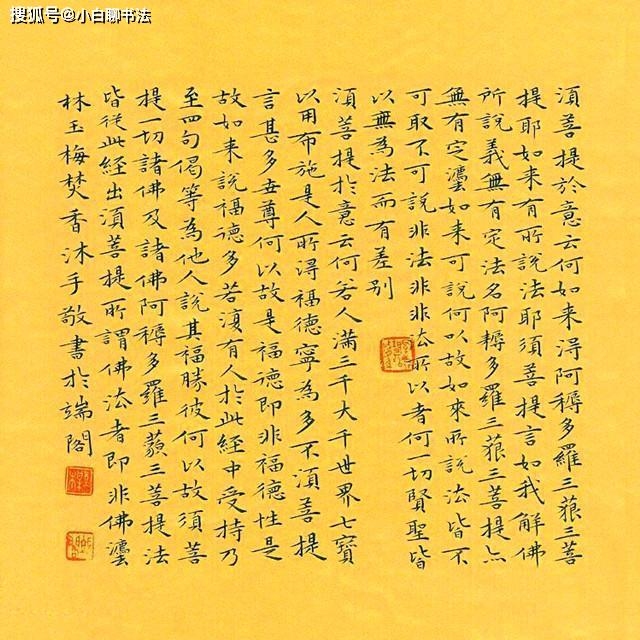 搜狐号@小白聊书法
湏菩提於意云何如来淂阿耨多羅三藐三菩
提耶如来有所說法耶須菩提言如我解佛
所說義無有定法名阿耨多羅三藐三菩提亦
無有定灋如来可說何以故如來所說法皆不
可取不可說非法非非法所以者何一切賢聖皆
以無為法而有差别
湏菩提於意云何若人滿三千大千世界七寶
以用布施是人所淂福德寧為多不湏菩提
言甚多世尊何以故是福德即非福德性是
故如来說福德多若復有人於此經中受持乃
至四句偈等為他人說其福勝彼何以故須菩
提一切諸佛及諸佛阿耨多羅三藐三菩提法
皆從此經出湏菩提所謂佛法者即非佛灋
林玉梅焚香沐手敬書於端閣